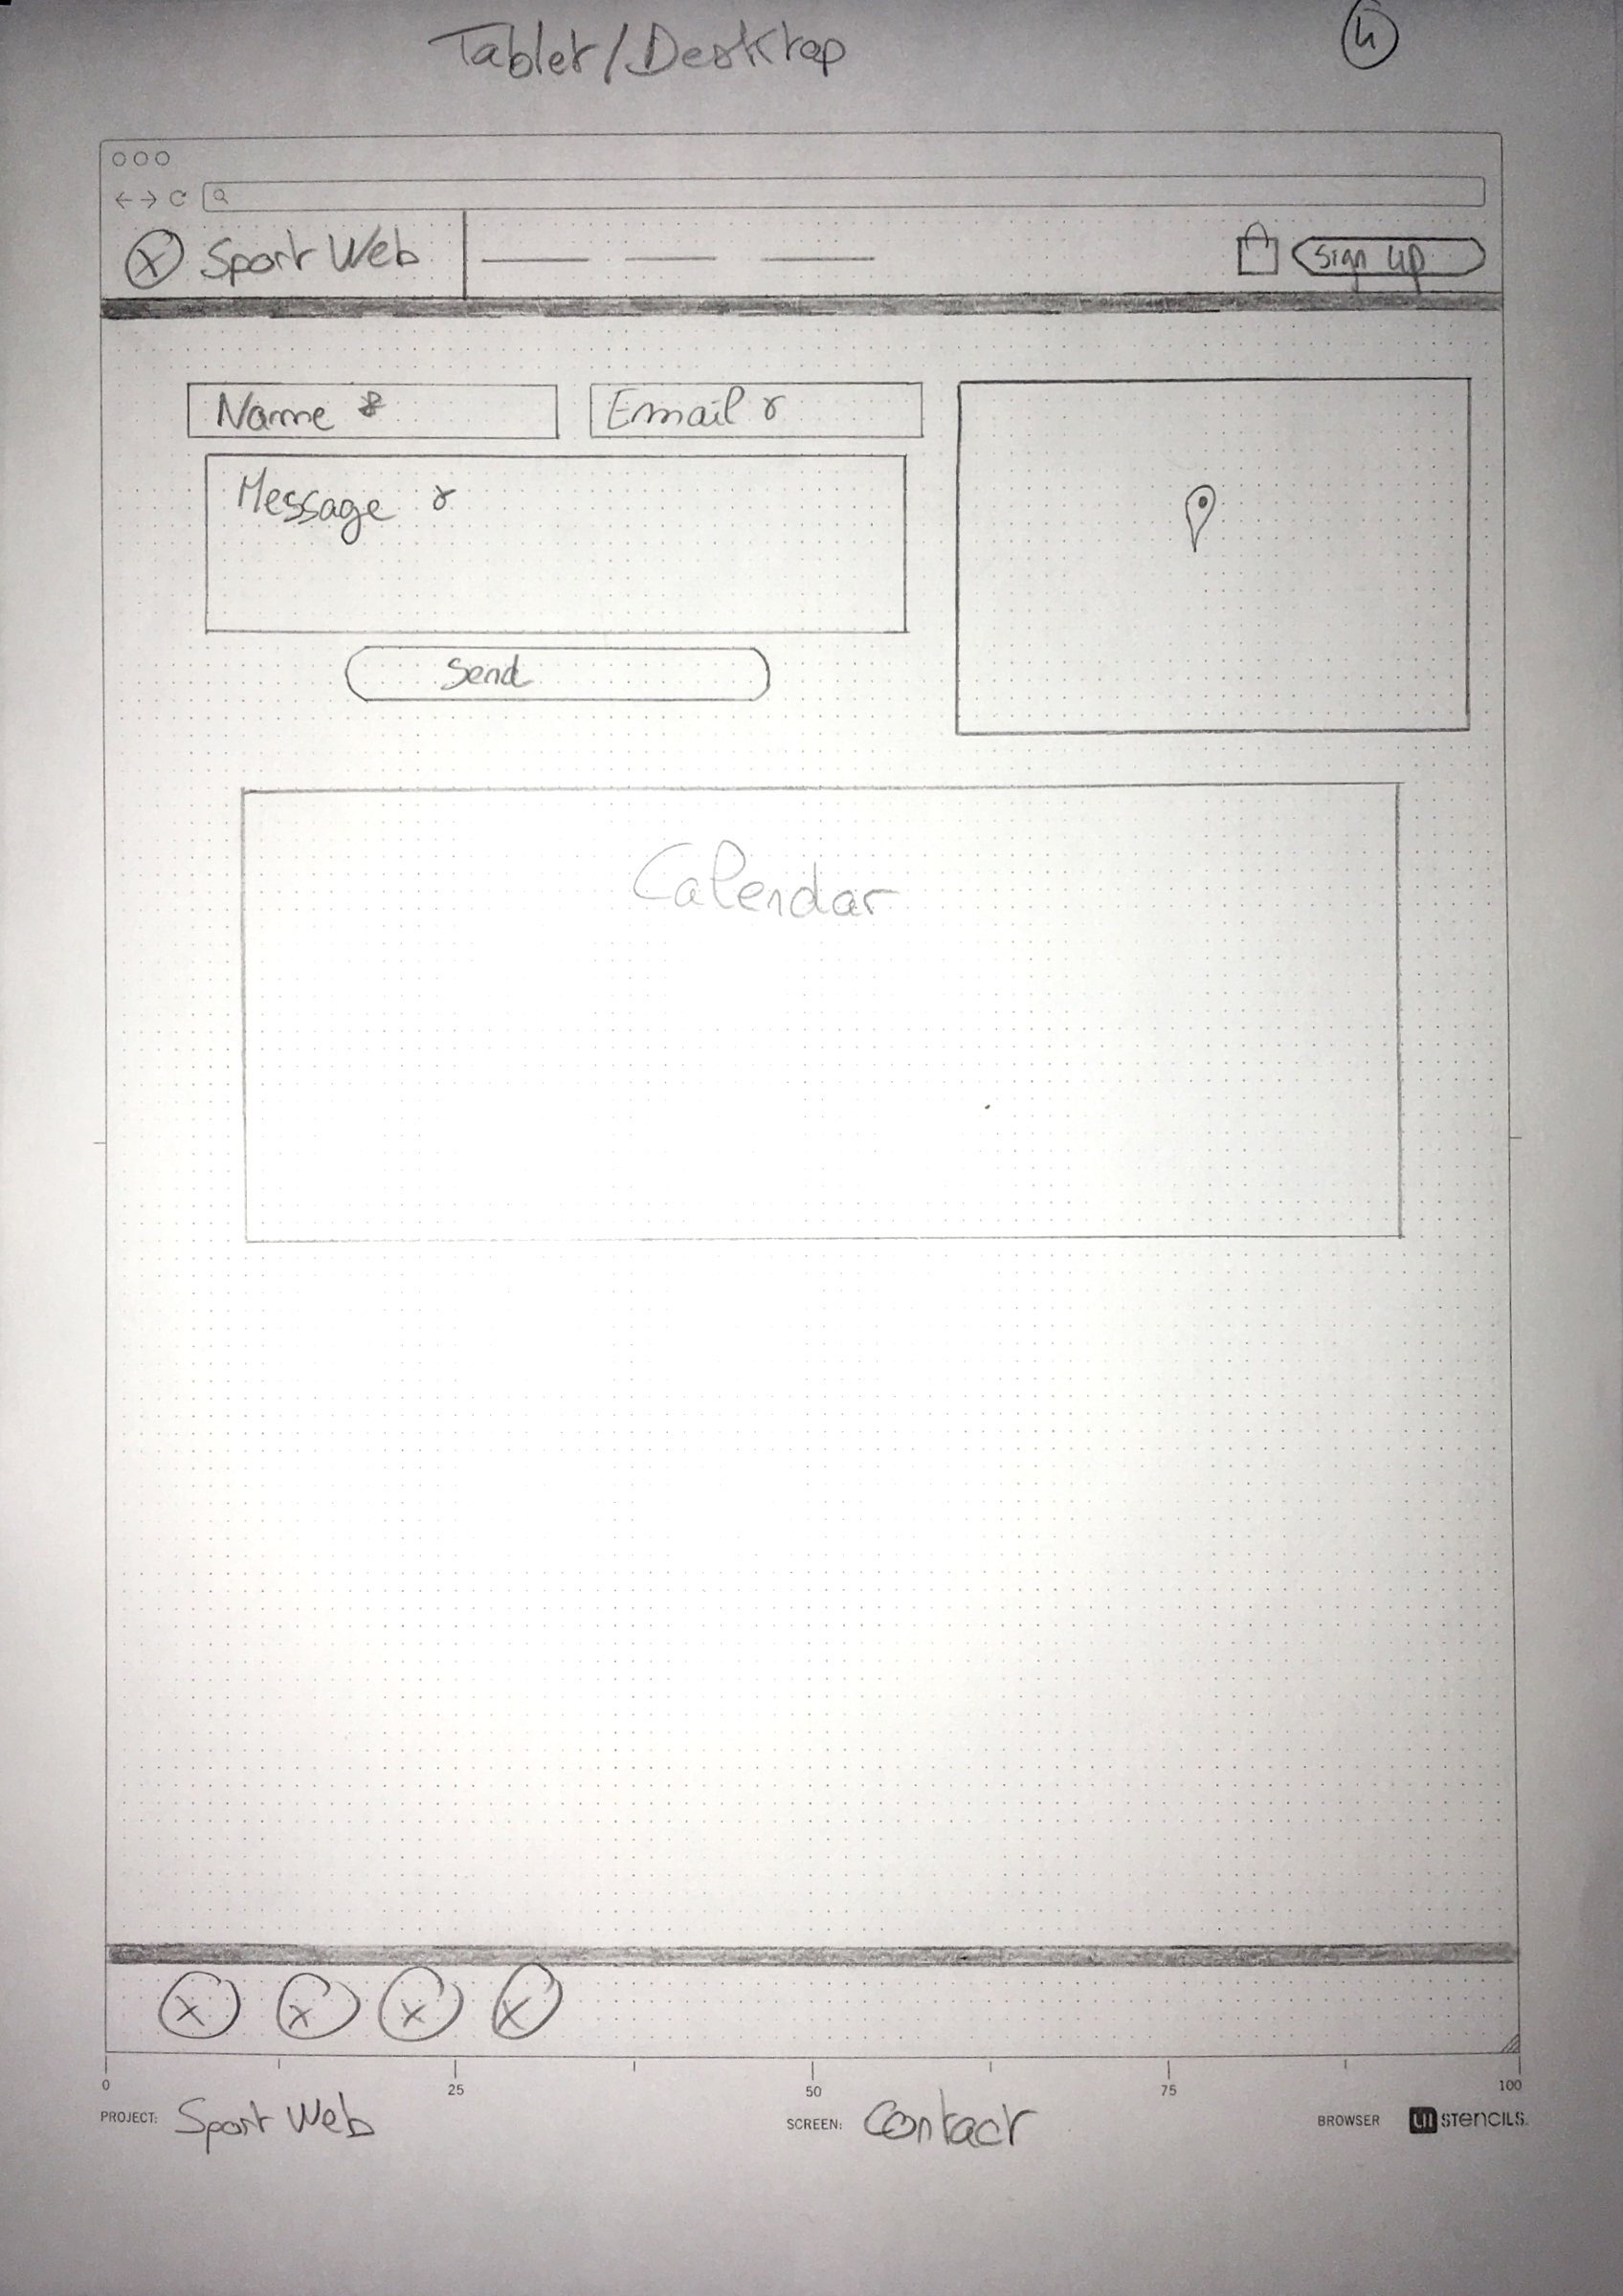 Tablet/Desktop
4
Sport Web
Sign up
Name *
Email *
Message *
Send
Calendar
0 25 50 75 100
PROJECT: Sport Web SCREEN: Contact BROWSER UI STENCILS.